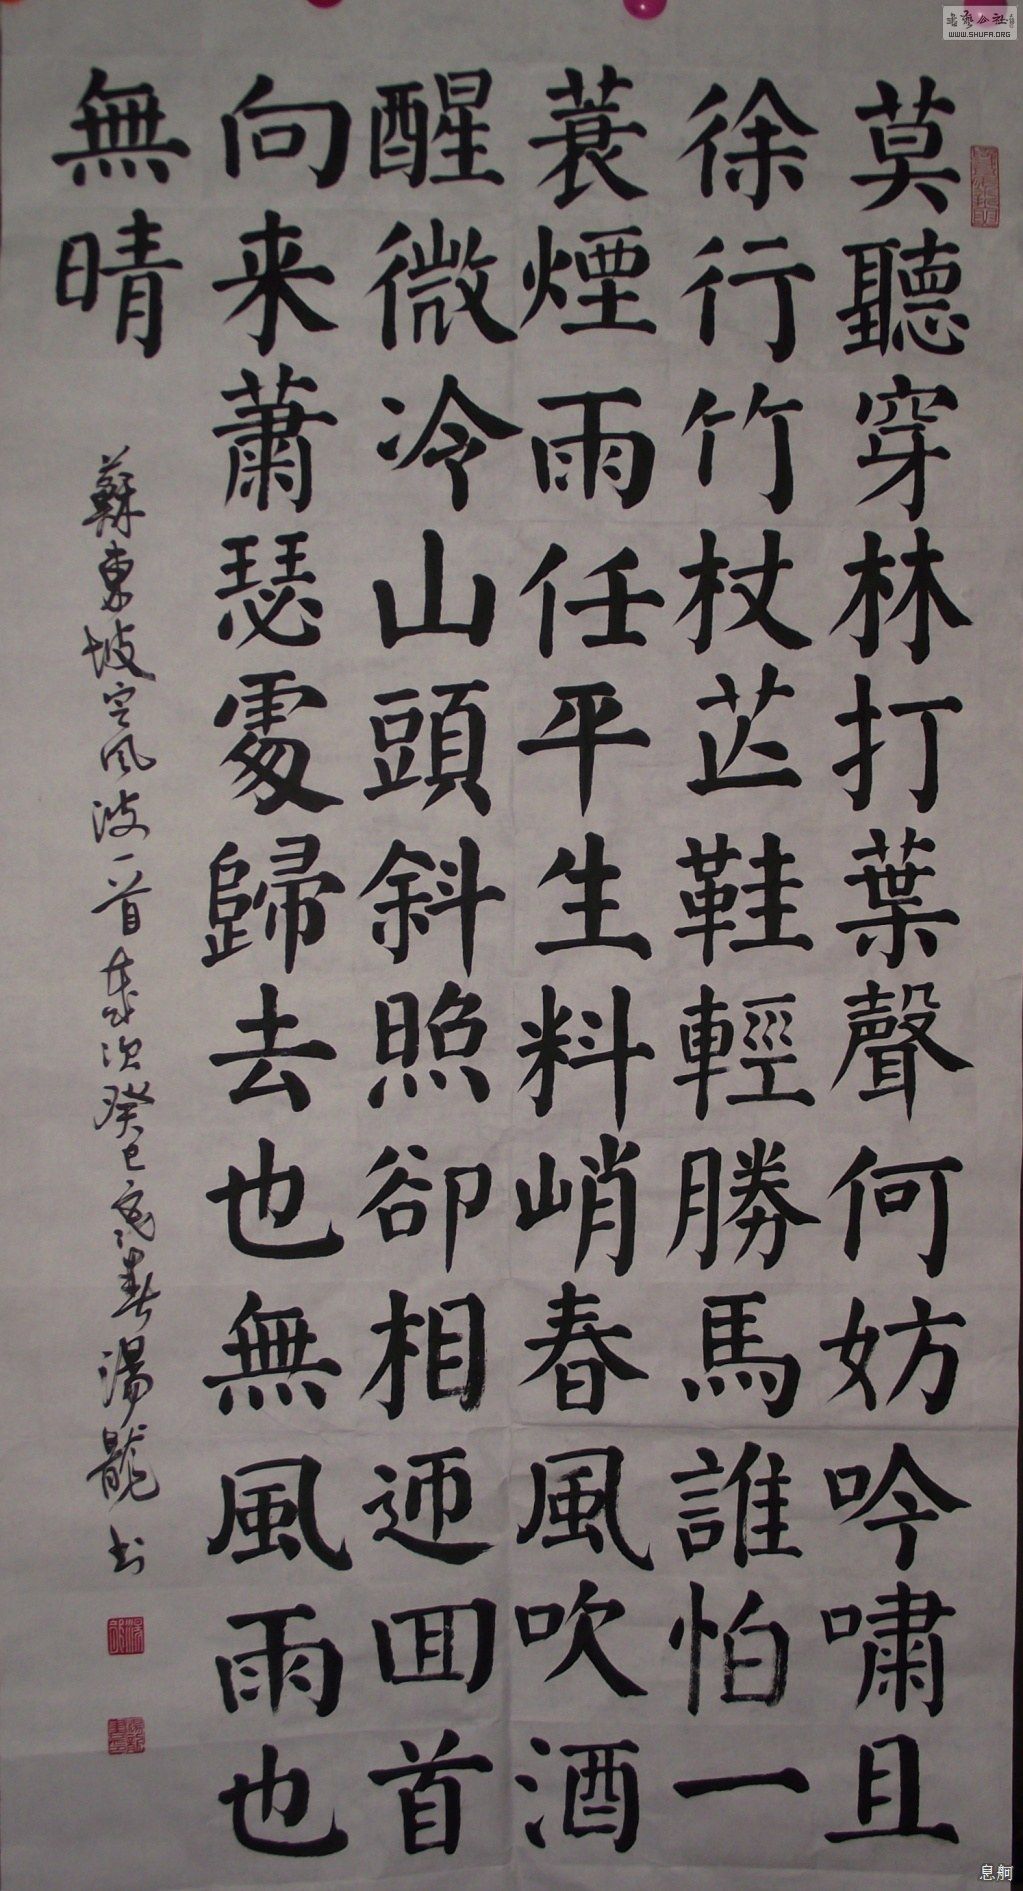 莫聽穿林打葉聲何妨吟嘯且
徐行竹杖芒鞋輕勝馬誰怕一
蓑煙雨任平生料峭春風吹酒
醒微冷山頭斜照卻相迎回首
向来蕭瑟處歸去也無風雨也
無晴
蘇東坡定風波一首歲次癸巳暮春湯龍书
WWW.SHUFA.ORG
息舸